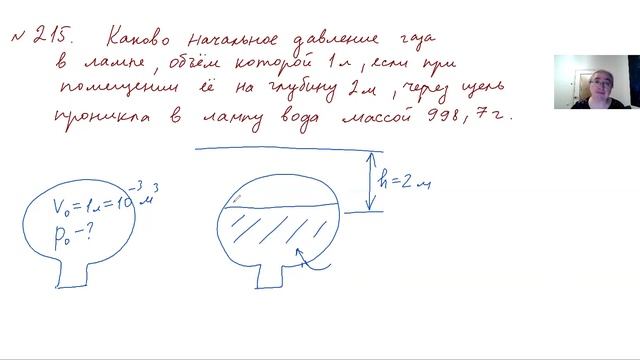 № 215. Каково начальное давление газа
в лампе, объём которой 1 л, если при
помещении её на глубину 2 м, через щель
проникла в лампу вода массой 998,7 г.
V₀ = 1 л = 10⁻³ м³
p₀ – ?
h = 2 м